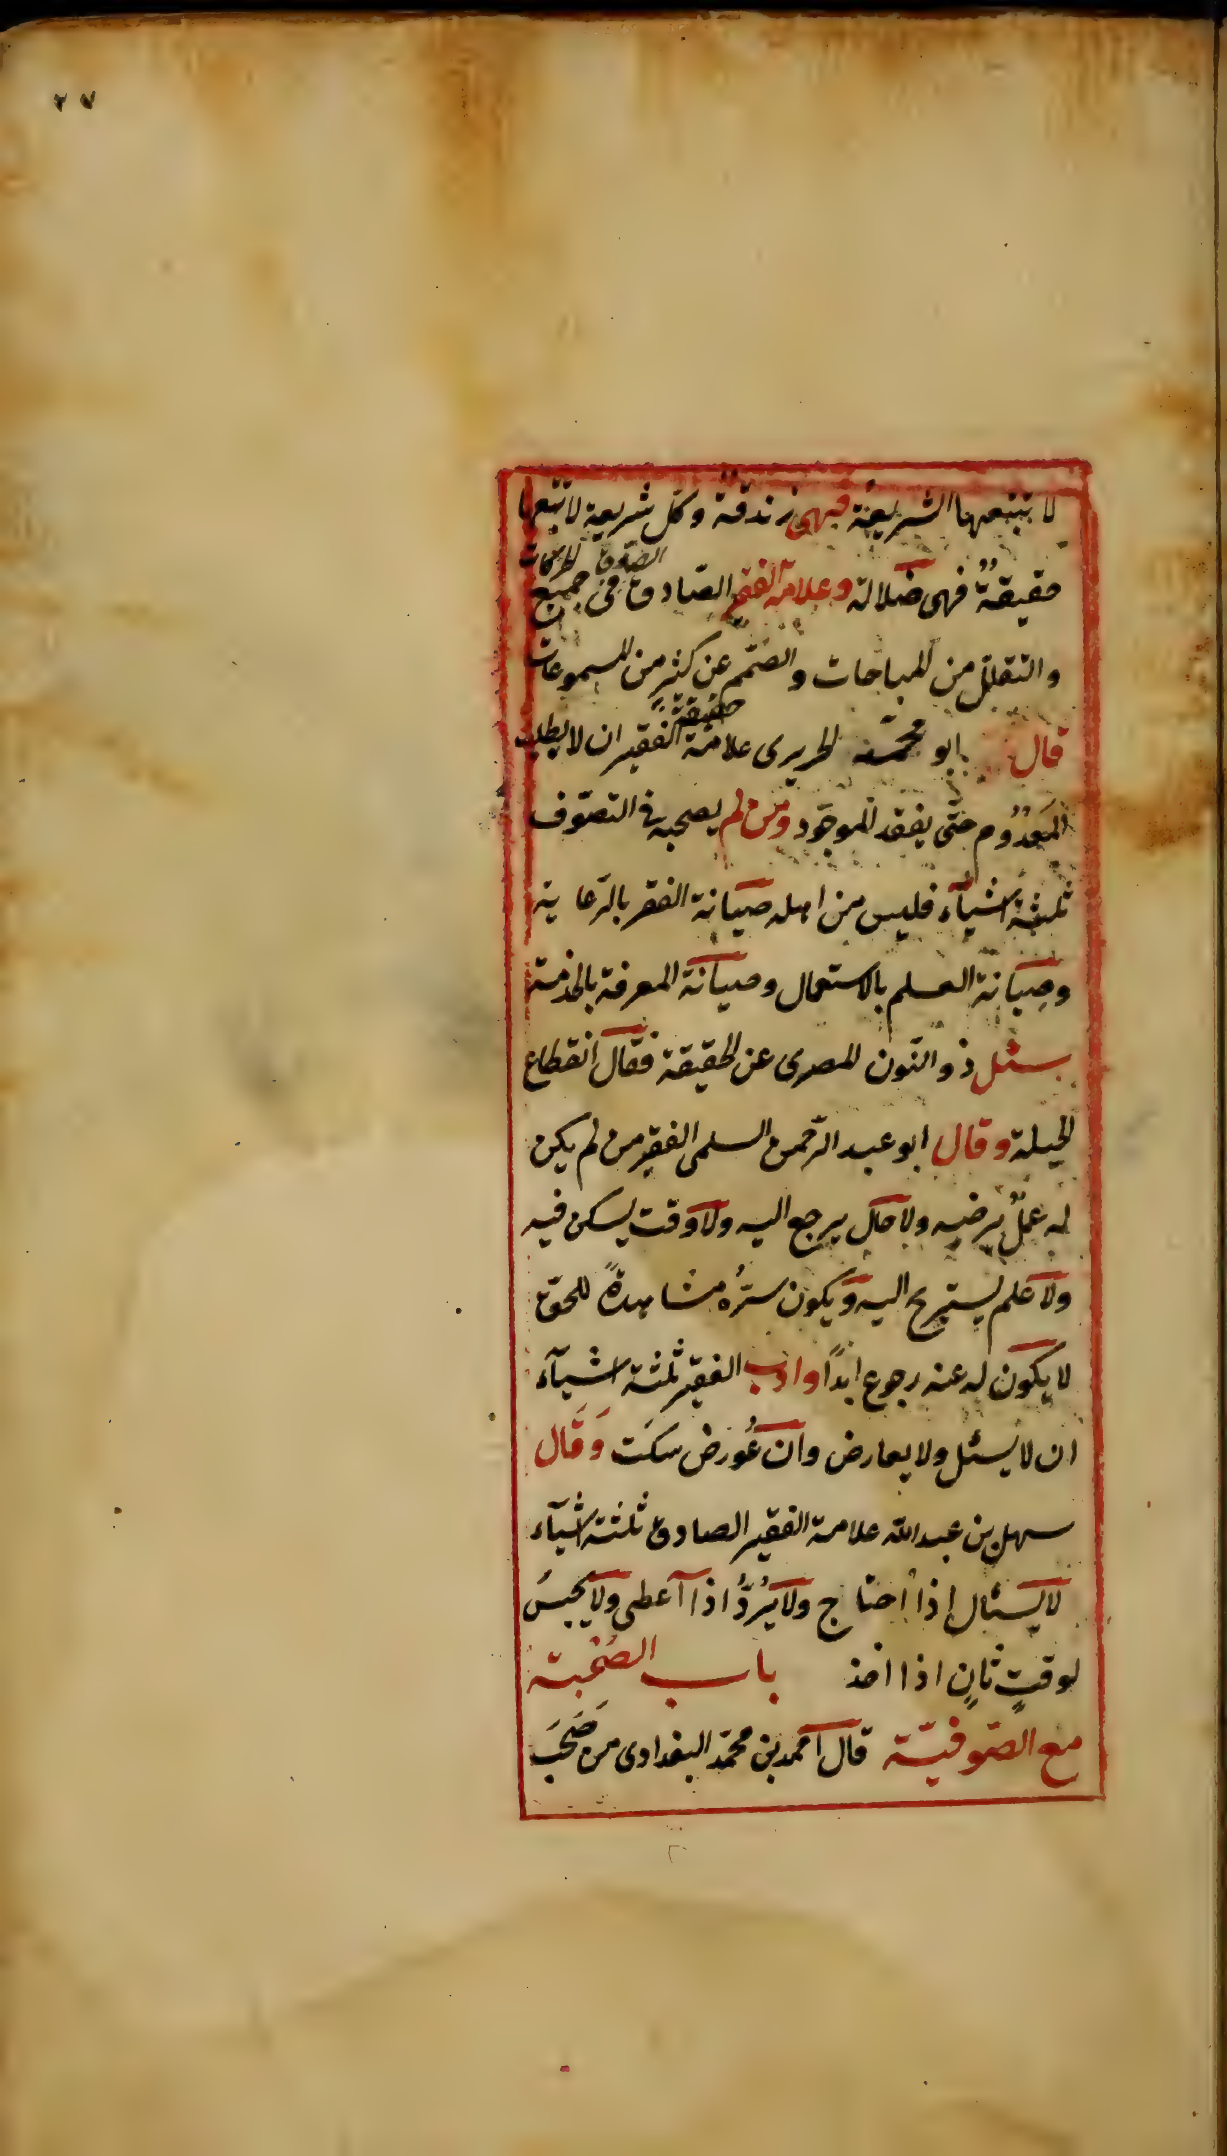 ٢٧
لا تتبعها الشريعة فهى زندقة وكل شريعة لا تتبعها
حقيقةٌ فهى ضلالة وعلامة الفقير الصادق الصدق فى جميع الحركات
والتقلل من المباحات والصّمم عن كثير من المسموعات
قال ابو محمد الحريرى علامة حقيقة الفقير ان لا يطلب
المعدوم حتّى يفقد الموجود ومن لم يصحبه فى التصوّف
ثلثة اشيآء فليس من اهله صيانة الفقر بالرّعاية
وصيانة العلم بالاستعمال وصيانة المعرفة بالخدمة
سئل ذو النّون المصرى عن الحقيقة فقال انقطاع
الحيلة وقال ابو عبد الرّحمن السلمى الفقير من لم يكن
له عملٌ يرضيه ولا حال يرجع اليه ولا وقت يسكن فيه
ولا علم يستريح اليه ويكون سرّه مشاهدةً للحقّ
لا يكون له عنه رجوع ابدًا وادب الفقير ثلثة اشيآء
ان لا يسئل ولا يعارض وان عُورض سكت وَقال
سهل بن عبد اللّه علامة الفقير الصادق ثلثة اشيآء
لا يسئال اذا احتاج ولا يَرُدُّ اذا اعطى ولا يحبسُ
لوقتٍ ثانٍ اذا اخذ باب الصُحبة
مع الصّوفيّة قال احمد بن محمّد البغدادى من صَحَبَ